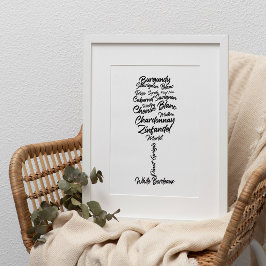 Burgundy
Sauvignon Blanc
Cabernet Sauvignon
Chenin Blanc
Chardonnay
Zinfandel
Merlot
Pinot Grigio
White Bordeaux